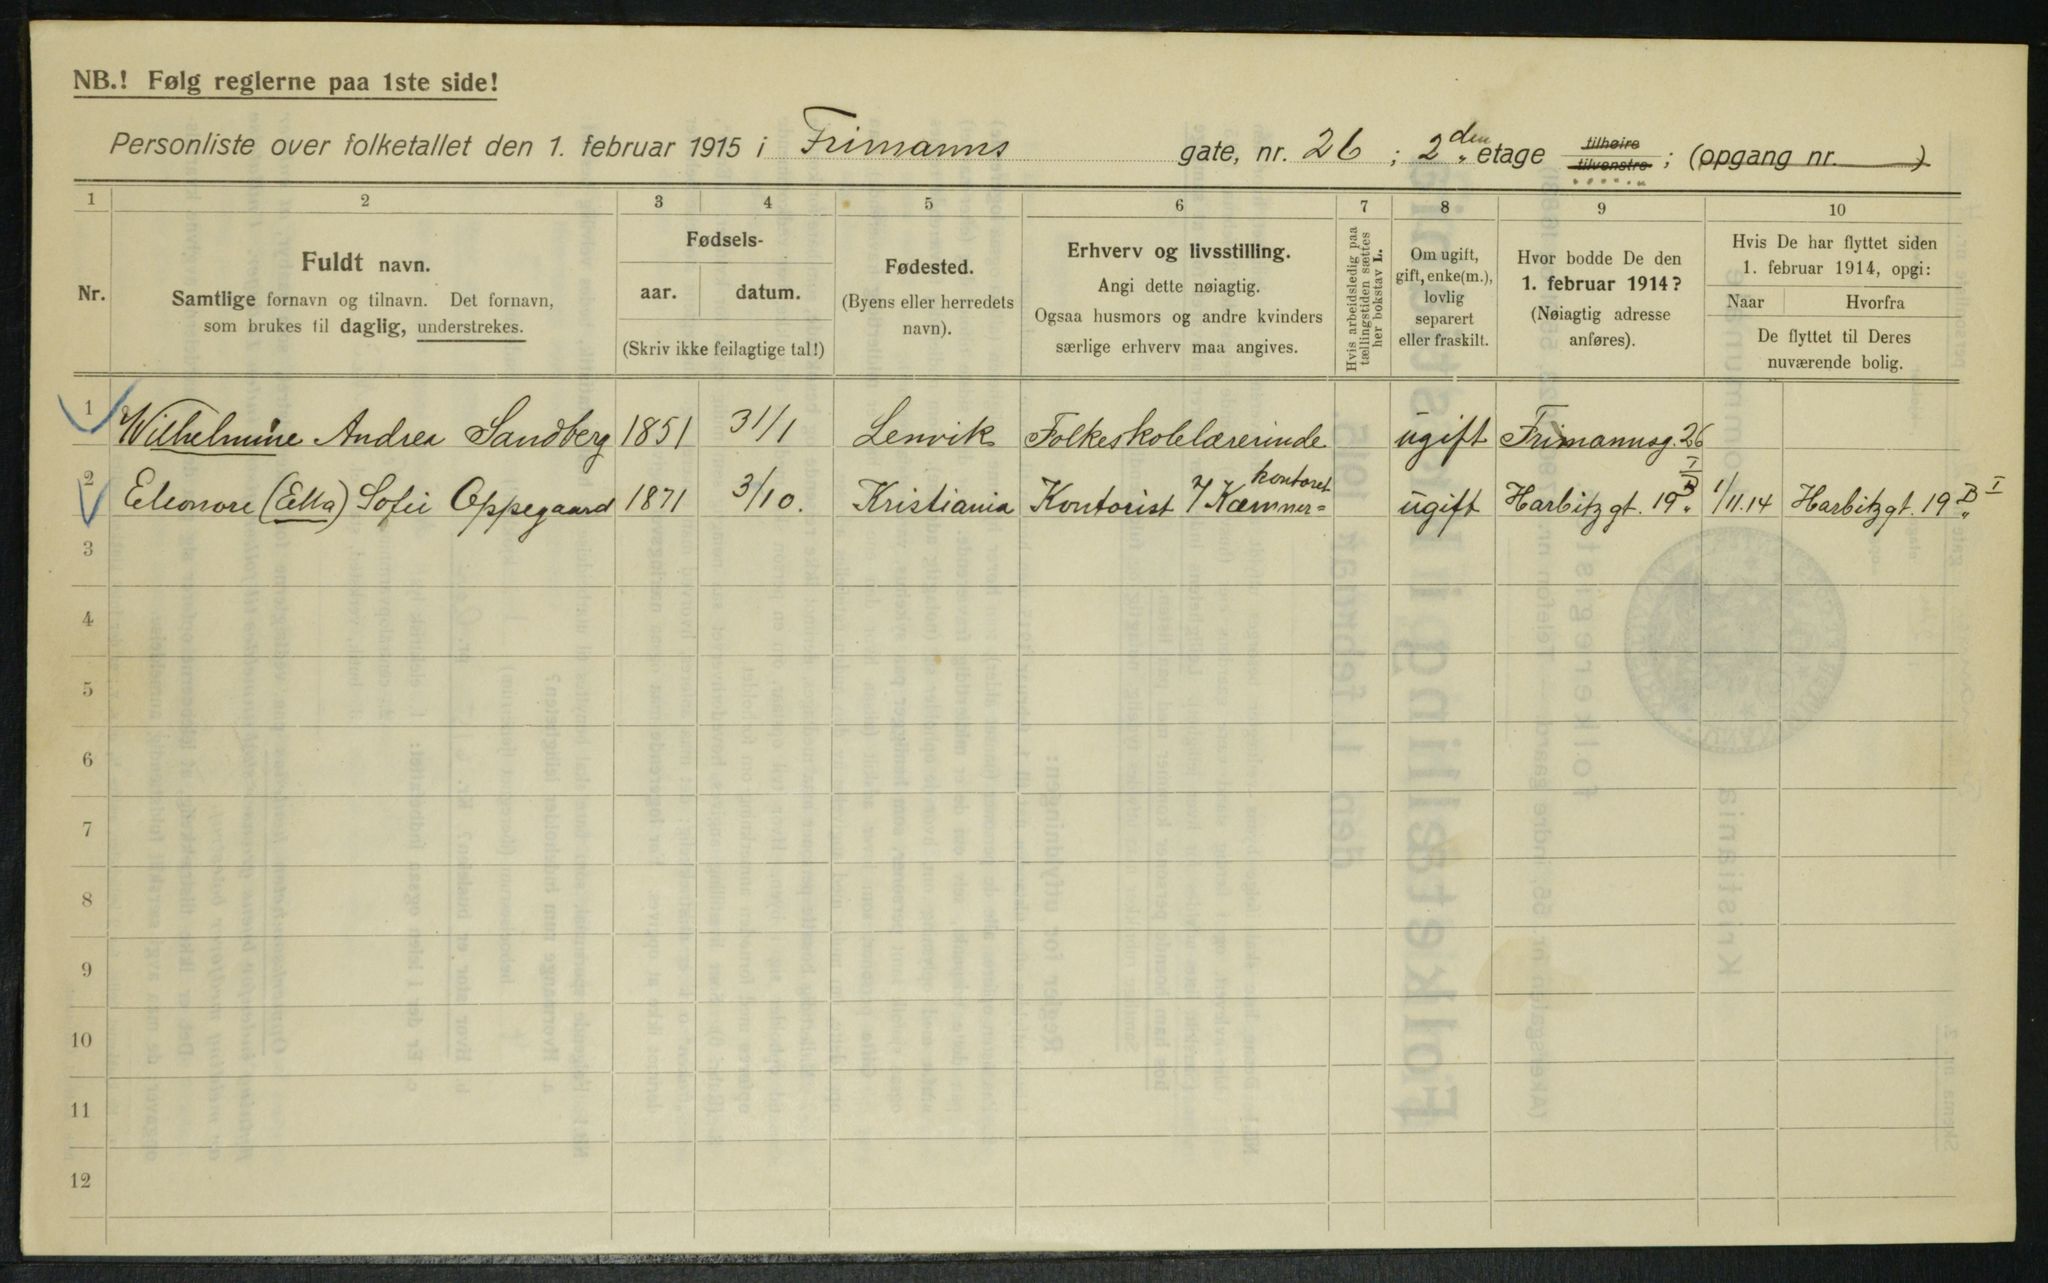 NB.! Følg reglerne paa 1ste side!
Personliste over folketallet den 1. februar 1915 i Frimanns gate, nr. 26 ; 2den etage tilhøire tilvenstre ; (opgang nr. )
1 2 3 4 5 6 7 8 9 10
Nr.
Fuldt navn.
Samtlige fornavn og tilnavn. Det fornavn,
som brukes til daglig, understrekes.
Fødsels-
aar. datum.
(Skriv ikke feilagtige tal!)
Fødested.
(Byens eller herredets
navn).
Erhverv og livsstilling.
Angi dette nøiagtig.
Ogsaa husmors og andre kvinders
særlige erhverv maa angives.
Hvis arbeidsledig paa
tællingstiden sættes
her bokstav L.
Om ugift,
gift, enke(m.),
lovlig
separert
eller fraskilt.
Hvor bodde De den
1. februar 1914?
(Nøiagtig adresse
anføres).
Hvis De har flyttet siden
1. februar 1914, opgi:
Naar Hvorfra
De flyttet til Deres
nuværende bolig.
1 Wilhelmine Andrea Sandberg 1851 31/1 Lenvik Folkeskolelærerinde ugift Frimannsg. 26
2 Eleonore (Ella) Sofie Oppegaard 1871 3/10. Kristiania Kontorist Kæmner= kontoret ugift Harbitzgt. 19 B I 1/11.14 Harbitzgt. 19 B I
3
4
5
6
7
8
9
10
11
12